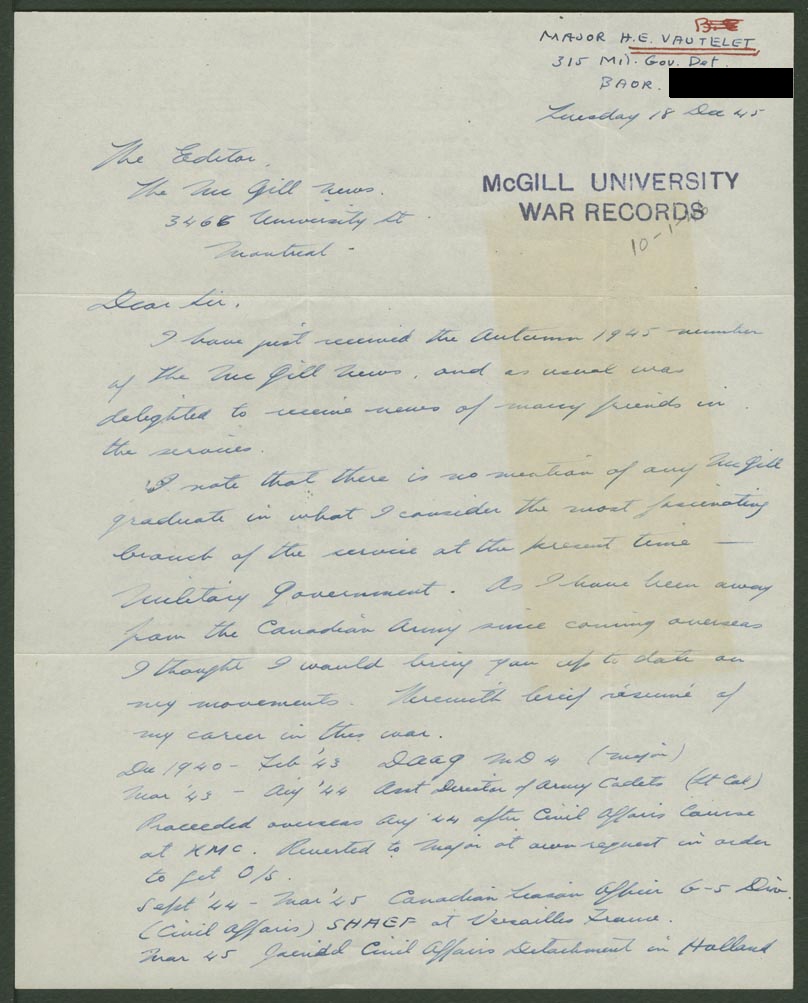 MAJOR H.E. VAUTELET
315 Mil. Gov. Det.
BAOR.
Tuesday 18 Dec 45
The Editor,
The McGill News.
3466 University St
Montreal.
McGILL UNIVERSITY
WAR RECORDS
Dear Sir,
I have just received the Autumn 1945 number
of the McGill News, and as usual was
delighted to receive news of many friends in
the services.
I note that there is no mention of any McGill
graduate in what I consider the most fascinating
branch of the service at the present time —
Military Government. As I have been away
from the Canadian Army since coming overseas
I thought I would bring you up to date on
my movements. Herewith brief résumé of
my career in this war.
Dec 1940 - Feb '43 DAAG MD 4 (Major)
Mar '43 - Aug '44 Asst Director of Army Cadets (Lt Col)
Proceeded overseas Aug '44 after Civil Affairs Course
at RMC. Reverted to Major at own request in order
to get O/S.
Sept '44 - Mar '45 Canadian Liaison Officer G-5 Div.
(Civil Affairs) SHAEF at Versailles France.
Mar 45 Joined Civil Affairs Detachment in Holland